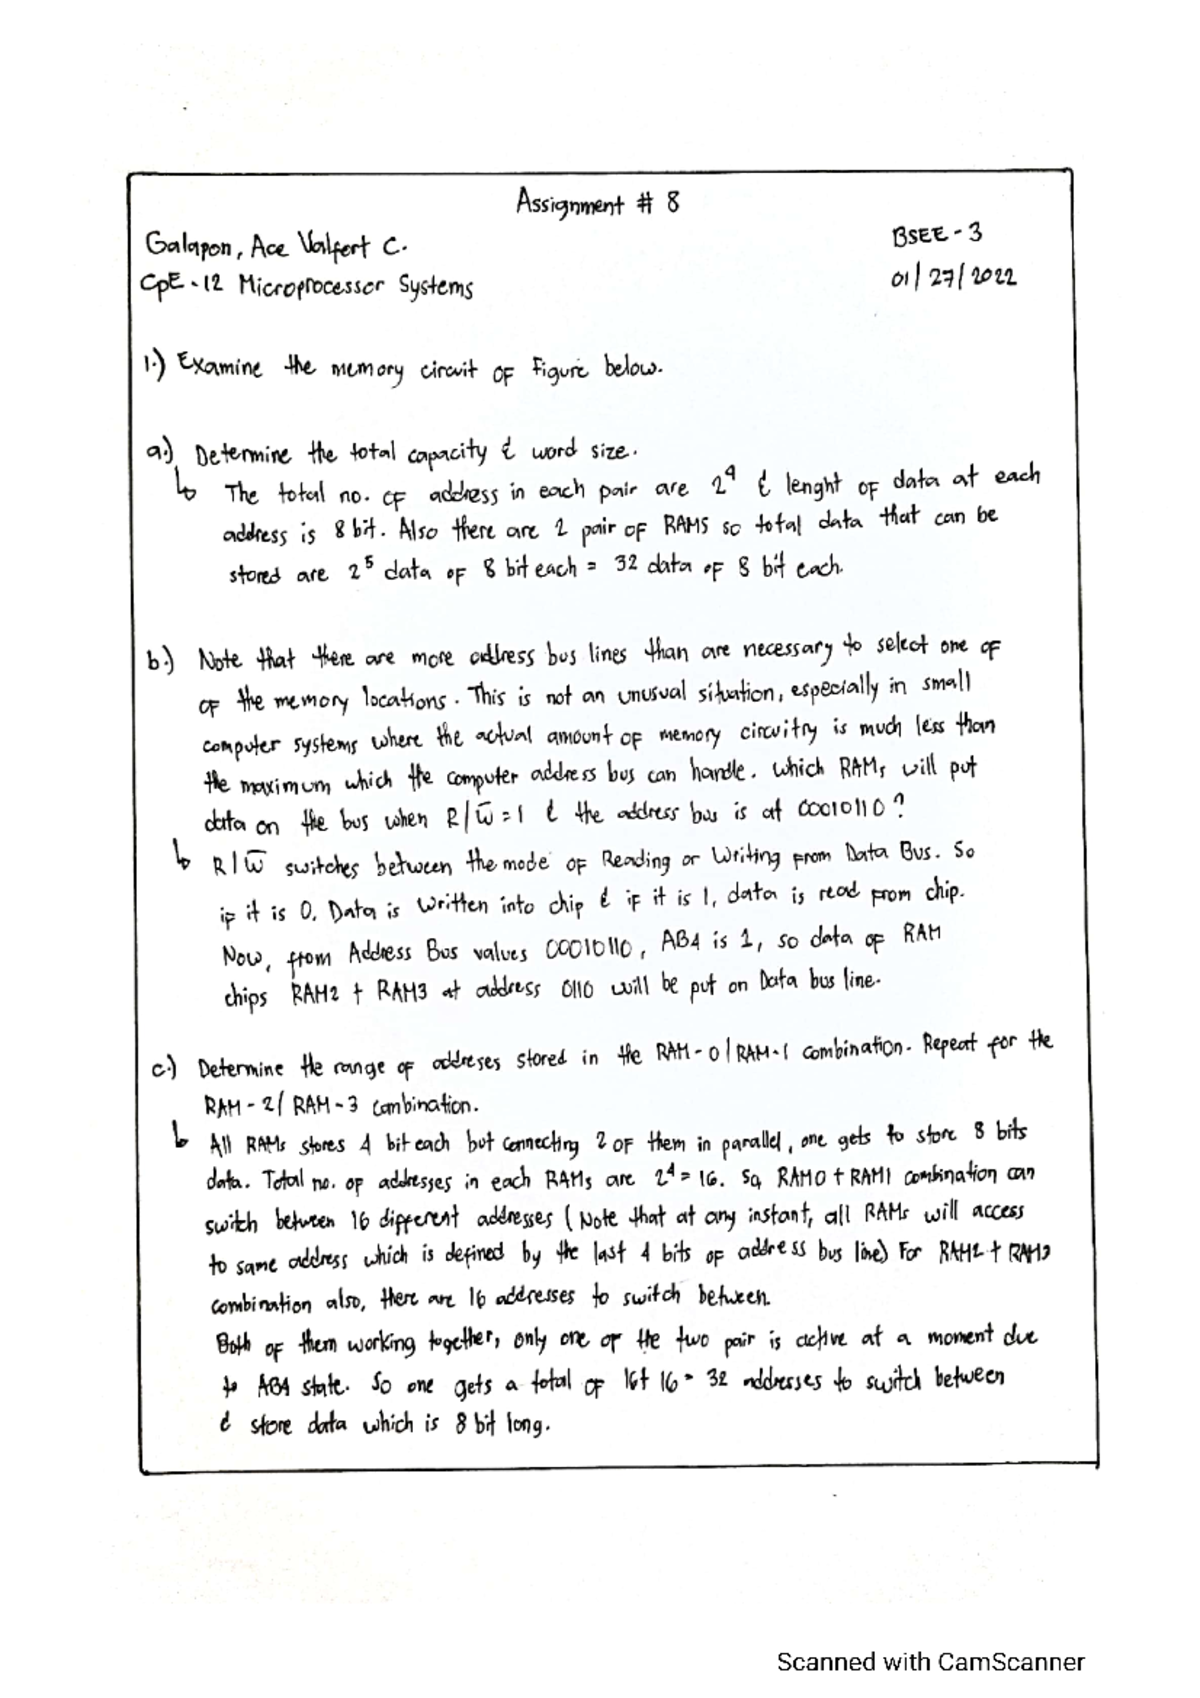 Assignment # 8
Galapon, Ace Valfert C.
BSEE - 3
CpE - 12 Microprocessor Systems
01/27/2022
1.) Examine the memory circuit of Figure below.
a.) Determine the total capacity & word size.
↳ The total no. of address in each pair are 2⁴ & lenght of data at each
address is 8 bit. Also there are 2 pair of RAMS so total data that can be
stored are 2⁵ data of 8 bit each = 32 data of 8 bit each.
b.) Note that there are more address bus lines than are necessary to select one of
of the memory locations. This is not an unusual situation, especially in small
computer systems where the actual amount of memory circuitry is much less than
the maximum which the computer address bus can handle. Which RAMs will put
data on the bus when R/W̅ = 1 & the address bus is at 00010110?
↳ R/W̅ switches between the mode of Reading or Writing from Data Bus. So
if it is 0, Data is written into chip & if it is 1, data is read from chip.
Now, from Address Bus values 00010110, AB4 is 1, so data of RAM
chips RAM2 + RAM3 at address 0110 will be put on Data bus line.
c.) Determine the range of addreses stored in the RAM-0/RAM-1 combination. Repeat for the
RAM-2/RAM-3 combination.
↳ All RAMs stores 4 bit each but connecting 2 of them in parallel, one gets to store 8 bits
data. Total no. of addresses in each RAMs are 2⁴ = 16. So, RAM0 + RAM1 combination can
switch between 16 different addresses (Note that at any instant, all RAMs will access
to same address which is defined by the last 4 bits of address bus line) For RAM2 + RAM3
combination also, there are 16 addresses to switch between.
Both of them working together, only one of the two pair is active at a moment due
to AB4 state. So one gets a total of 16 + 16 = 32 addresses to switch between
& store data which is 8 bit long.
Scanned with CamScanner